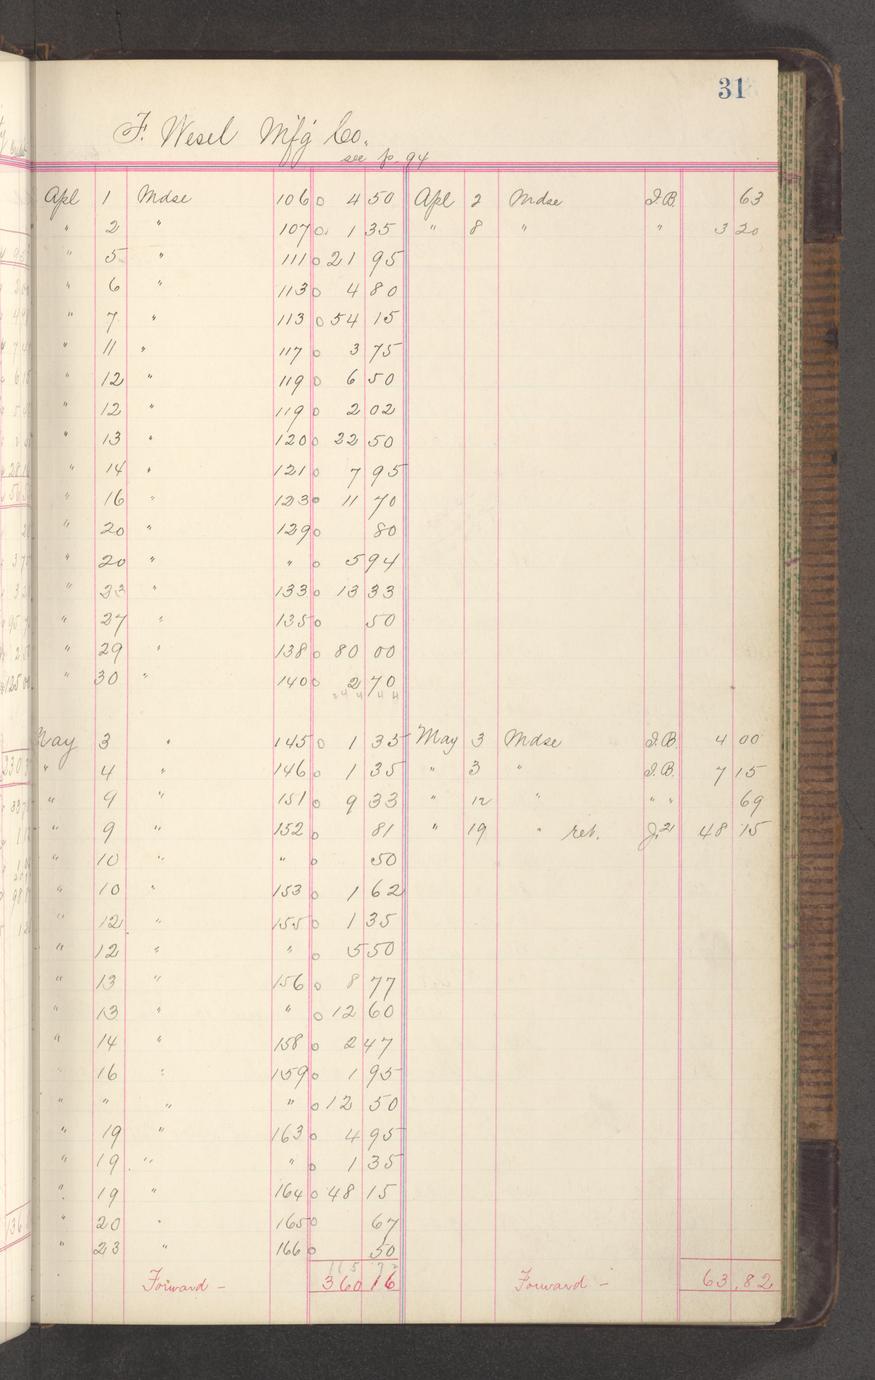 31
F. Wesel Mfg Co.
see p. 94
Apl 1 Mdse 106 0 4 50 Apl 2 Mdse J.B. 63
" 2 " 107 0 1 35 " 8 " " 3 20
" 5 " 111 0 21 95
" 6 " 113 0 4 80
" 7 " 113 0 54 15
" 11 " 117 0 3 75
" 12 " 119 0 6 50
" 12 " 119 0 2 02
" 13 " 120 0 22 50
" 14 " 121 0 7 95
" 16 " 123 0 11 70
" 20 " 129 0 80
" 20 " " 0 5 94
" 23 " 133 0 13 33
" 27 " 135 0 50
" 29 " 138 0 80 00
" 30 " 140 0 2 70
May 3 " 145 0 1 35 May 3 Mdse J.B. 4 00
" 4 " 146 0 1 35 " 3 " J.B. 7 15
" 9 " 151 0 9 33 " 12 " " " 69
" 9 " 152 0 81 " 19 " ret. J.21 48 15
" 10 " " 0 50
" 10 " 153 0 1 62
" 12 " 155 0 1 35
" 12 " " 0 5 50
" 13 " 156 0 8 77
" 13 " " 0 12 60
" 14 " 158 0 2 47
" 16 " 159 0 1 95
" " " " 0 12 50
" 19 " 163 0 4 95
" 19 " " 0 1 35
" 19 " 164 0 48 15
" 20 " 165 0 67
" 23 " 166 0 50
Forward - 360 16 Forward - 63.82